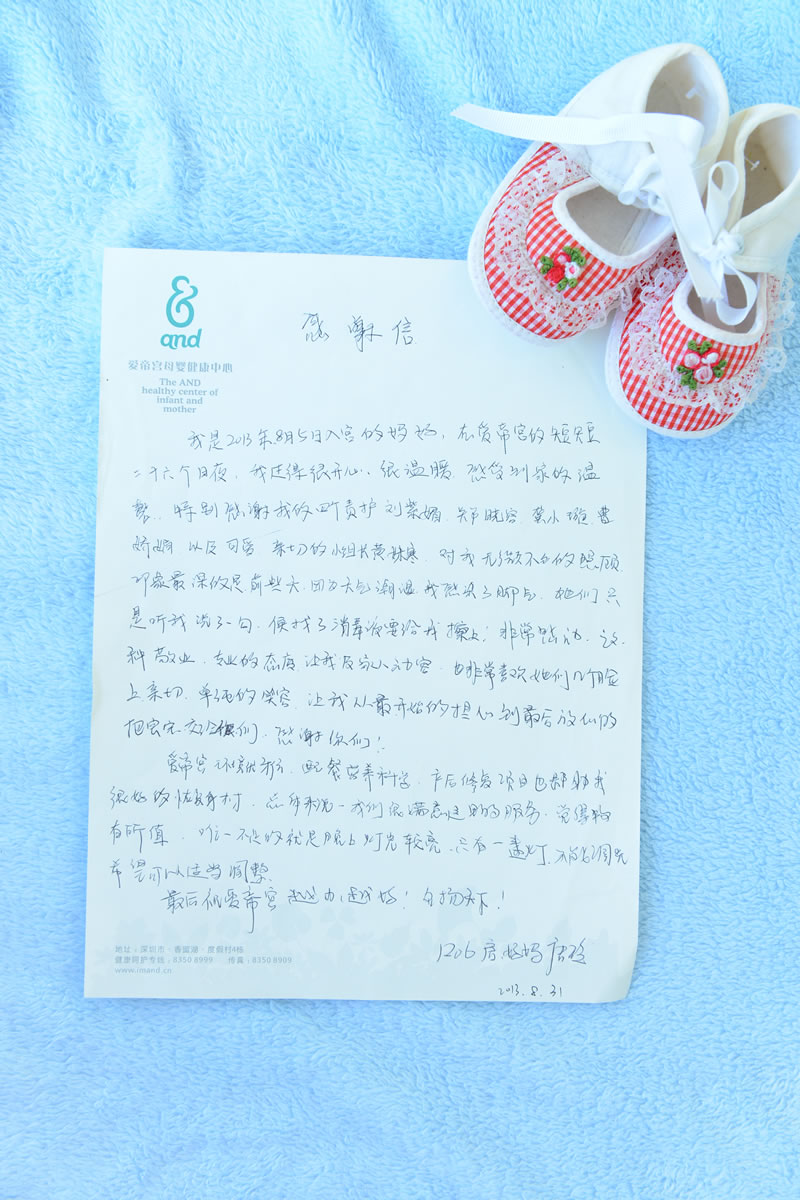 and
爱帝宫母婴健康中心
The AND
healthy center of
infant and
mother
感谢信
我是2013年8月5日入宫的妈妈，在爱帝宫的短短
二十六个日夜，我过得很开心、很温暖，感受到家的温
馨。特别感谢我的四个责护刘紫媚、郑晓容、龚小璇、曹
娇娴 以及可爱 亲切的小组长黄 寒，对我无微不至的照顾
印象最深的是前些天，因为天气潮湿 我感染了脚气，她们只
是听我说了一句，便找了消毒液要给我擦上；非常贴心。这
种敬业、专业的态度，让我及家人动容，也非常喜欢她们几个脸
上亲切、单纯的笑容，让我从最开始的担心到最后放心的
把宝宝交给你们，感谢你们！
爱帝宫环境优雅，配餐营养科学，产后修复项目也帮助我
很好的恢复身材，总体来说，我们很满意这里的服务，觉得物
有所值，唯一不足的就是晚上灯光较亮，只有一盏灯，不能调光
希望可以适当调整。
最后祝爱帝宫越办越好！名扬天下！
1206房妈妈
2013.8.31
地址：深圳市·香蜜湖·度假村4栋
健康呵护专线：8350 8999 传真：8350 8909
www.imand.cn